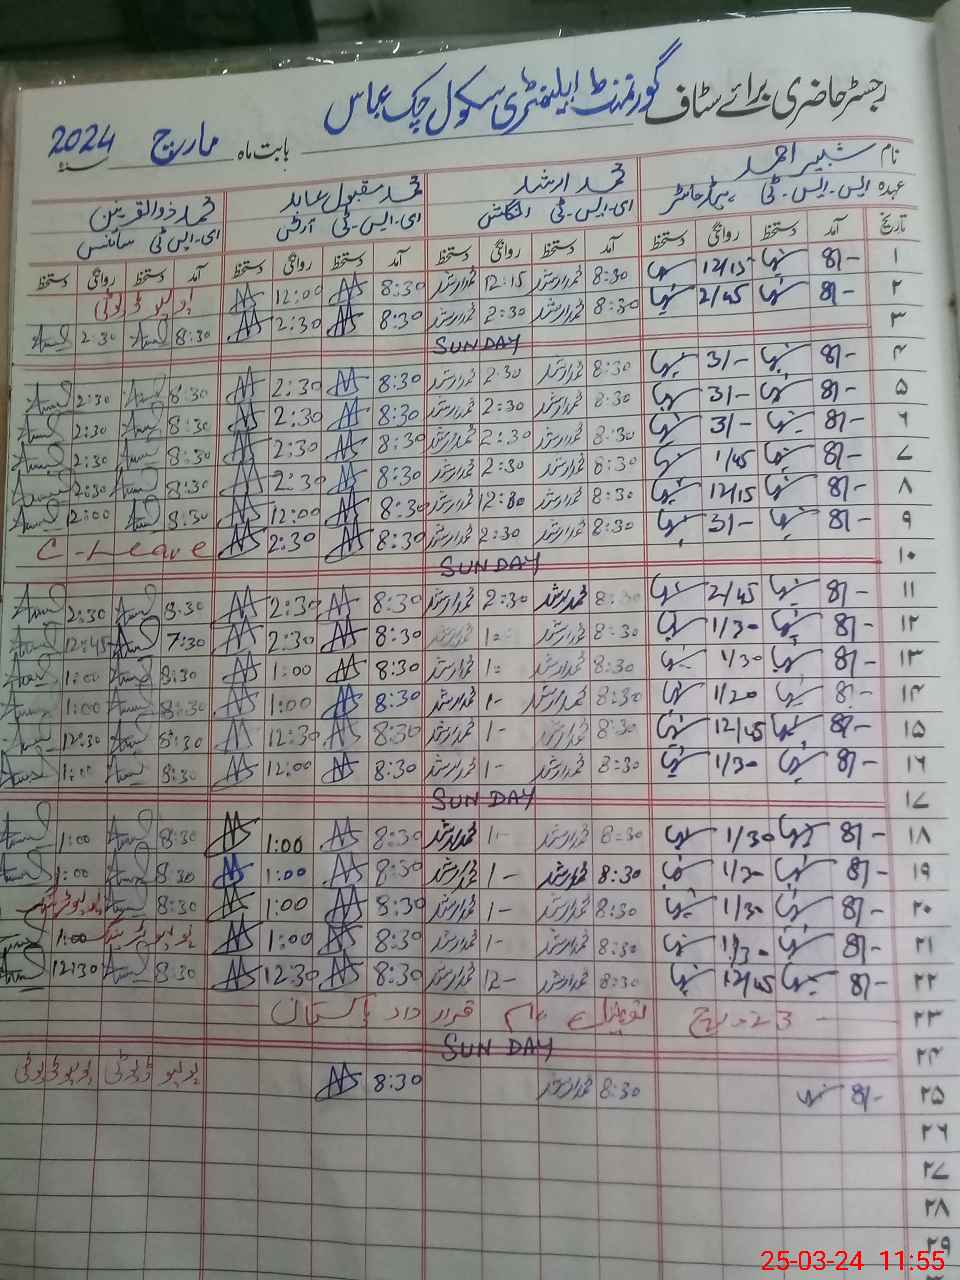 رجسٹر حاضری برائے سٹاف گورنمنٹ ایلیمنٹری سکول چک عباس
بابت ماہ مارچ سنہ 2024
نام شبیر احمد محمد ارشد محمد مقبول عابد محمد ذوالقرنین
عہدہ ایس۔ایس۔ٹی ہیڈ ماسٹر ای۔ایس۔ٹی انگلش ای۔ایس۔ٹی آرٹس ای۔ایس ٹی سائنس
تاریخ آمد دستخط روانگی دستخط آمد دستخط روانگی دستخط آمد دستخط روانگی دستخط آمد دستخط روانگی دستخط
۱ 8/- 12/15 8:30 محمد ارشد 12:15 محمد ارشد 8:30 12:00 پولیو ڈیوٹی
۲ 8/- 2/45 8:30 محمد ارشد 2:30 محمد ارشد 8:30 2:30 8:30 2:30
۳ SUNDAY
۴ 8/- 3/- 8:30 محمد ارشد 2:30 محمد ارشد 8:30 2:30 8:30 2:30
۵ 8/- 3/- 8:30 محمد ارشد 2:30 محمد ارشد 8:30 2:30 8:30 2:30
۶ 8/- 3/- 8:30 محمد ارشد 2:30 محمد ارشد 8:30 2:30 8:30 2:30
۷ 8/- 1/45 8:30 محمد ارشد 2:30 محمد ارشد 8:30 2:30 8:30 2:30
۸ 8/- 12/15 8:30 محمد ارشد 12:30 محمد ارشد 8:30 12:00 8:30 12:00
۹ 8/- 3/- 8:30 محمد ارشد 2:30 محمد ارشد 8:30 2:30 C-Leave
۱۰ SUNDAY
۱۱ 8/- 2/45 8:30 محمد ارشد 2:30 محمد ارشد 8:30 2:30 8:30 2:30
۱۲ 8/- 1/30 8:30 محمد ارشد 8:30 2:30 7:30 12:45
۱۳ 8/- 1/30 8:30 محمد ارشد محمد ارشد 8:30 1:00 8:30 1:00
۱۴ 8/- 1/20 8:30 محمد ارشد 1- محمد ارشد 8:30 1:00 8:30 1:00
۱۵ 8/- 12/45 8:30 محمد ارشد 1- محمد ارشد 8:30 12:30 8:30 12:30
۱۶ 8/- 1/30 8:30 محمد ارشد 1- محمد ارشد 8:30 12:00 8:30 1:00
۱۷ SUNDAY
۱۸ 8/- 1/30 8:30 محمد ارشد 1- محمد ارشد 8:30 1:00 8:30 1:00
۱۹ 8/- 8:30 محمد ارشد 1- محمد ارشد 8:30 1:00 8:30 1:00
۲۰ 8/- 1/30 8:30 محمد ارشد 1- محمد ارشد 8:30 1:00 8:30
۲۱ 8/- 1/30 8:30 محمد ارشد 1- محمد ارشد 8:30 1:00 1:00
۲۲ 8/- 12/45 8:30 محمد ارشد 12- محمد ارشد 8:30 12:30 8:30 12:30
۲۳ 23 مارچ تعطیل یوم قرار داد پاکستان
۲۴ SUNDAY
۲۵ 8/- 8:30 محمد ارشد 8:30 پولیو ڈیوٹی پولیو ڈیوٹی
۲۶
۲۷
۲۸
۲۹
25-03-24 11:55